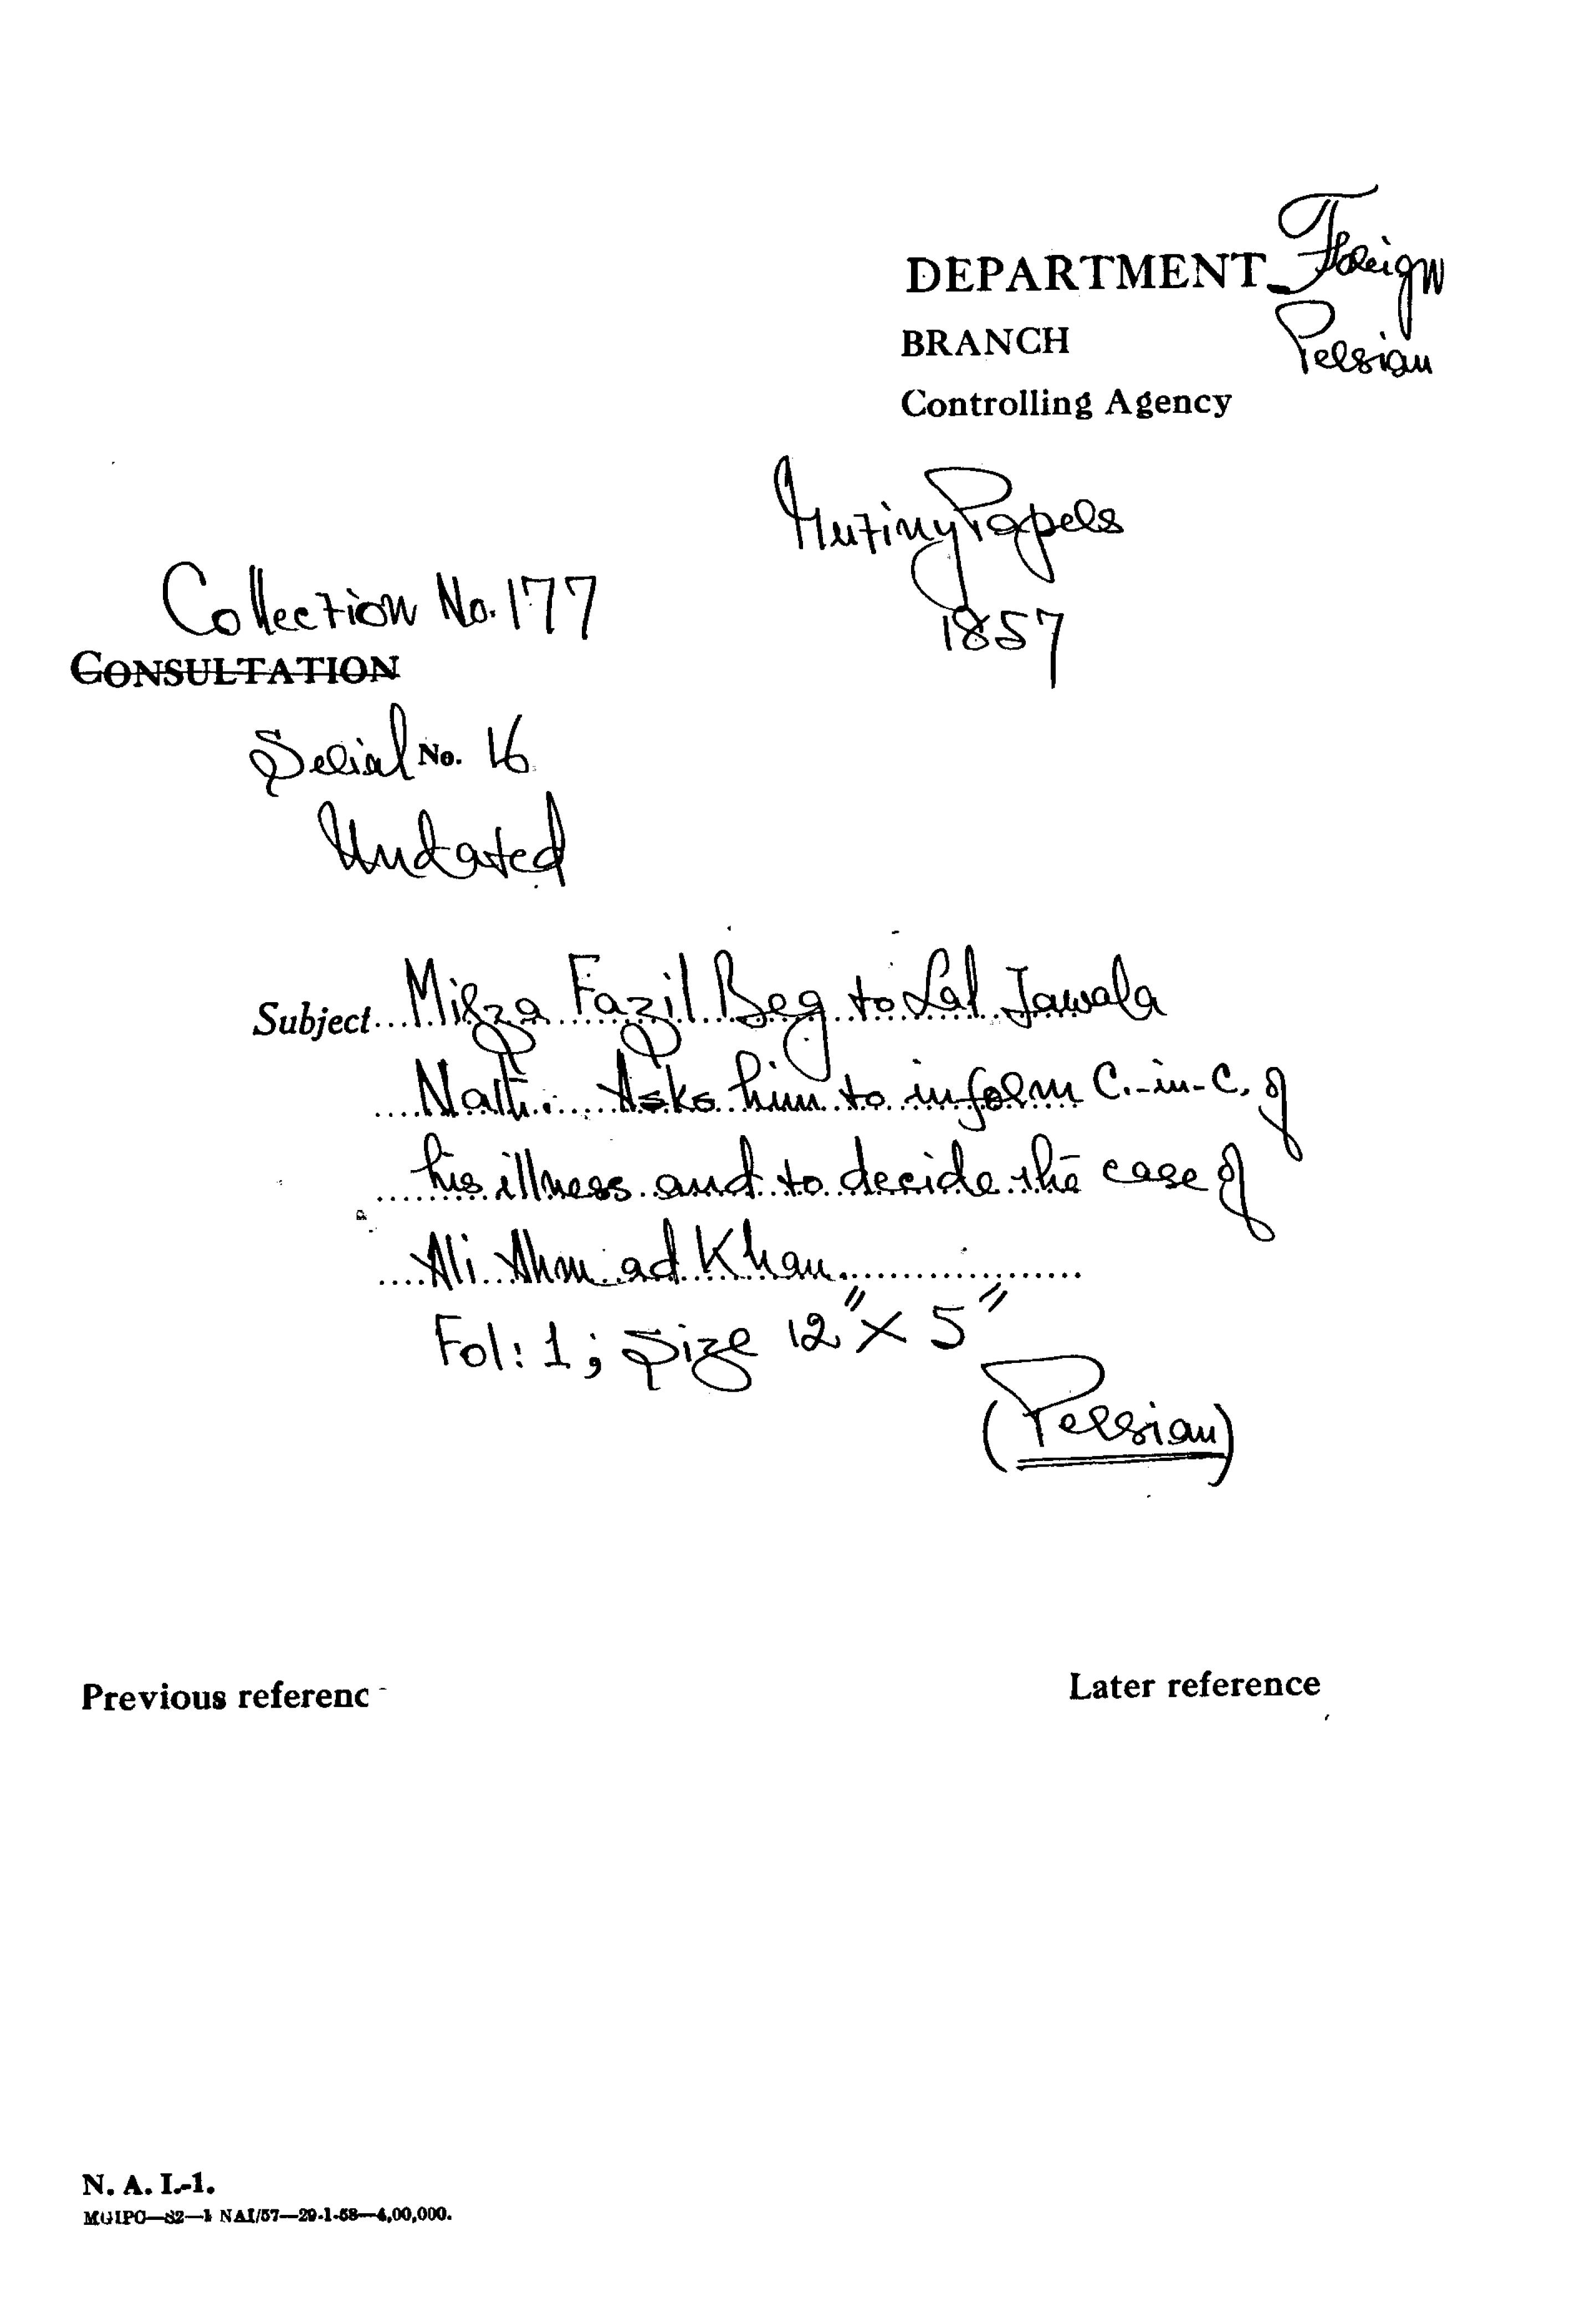 DEPARTMENT Foreign
BRANCH Persian
Controlling Agency
Mutiny Papers
1857
Collection No. 177
CONSULTATION
Serial No. 16
Undated
Subject Mirza Fazil Beg to Lal Jawala
Nath. Asks him to inform C.-in-C. of
his illness and to decide the case of
Ali Ahmad Khan.
Fol: 1; Size 12" X 5"
(Persian)
Previous referenc
Later reference
N. A. I.-1.
MGIPC—82—1 NAI/57—29-1-58—4,00,000.